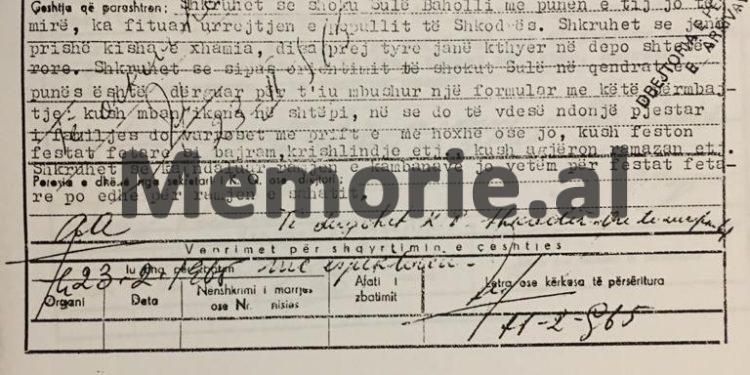 Çeshtja që parashtron: Shkruhet se shoku Sulë Baholli me punën e tij jo të
mirë, ka fituar urrejtjen e popullit të Shkodrës. Shkruhet se janë
prishë kisha e xhamia, disa prej tyre janë kthyer në depo shtetë-
rore. Shkruhet se sipas orientimit të shokut Sulë në qendrat e
punës është dërguar për t'iu mbushur një formular me këtë përmbaj-
tje: kush mban ikona në shtëpi, në se do të vdesë ndonjë pjestar
i familjes do varroset me prift e me hoxhë ose jo, kush feston
festat fetare bi bajram, krishlindje etj. kush agjëron ramazan etj.
Shkruhet se ka ndaluar rënien e kambanave jo vetëm për festat feta-
Porosia e dhënë nga sekretari i K. Q. ose drejtori:
re po edhe për ramjen e sahatit.
Memorie.al
Të dërgohet K.P. Shkodër
Veprimet për shqyrtimin e çështjes
23-2-1965
Organi
Data
Nënshkrimi i marrjes
ose Nr.
Afati i
zbatimit
Letra ose kërkesa të përsëritura
11-2-965